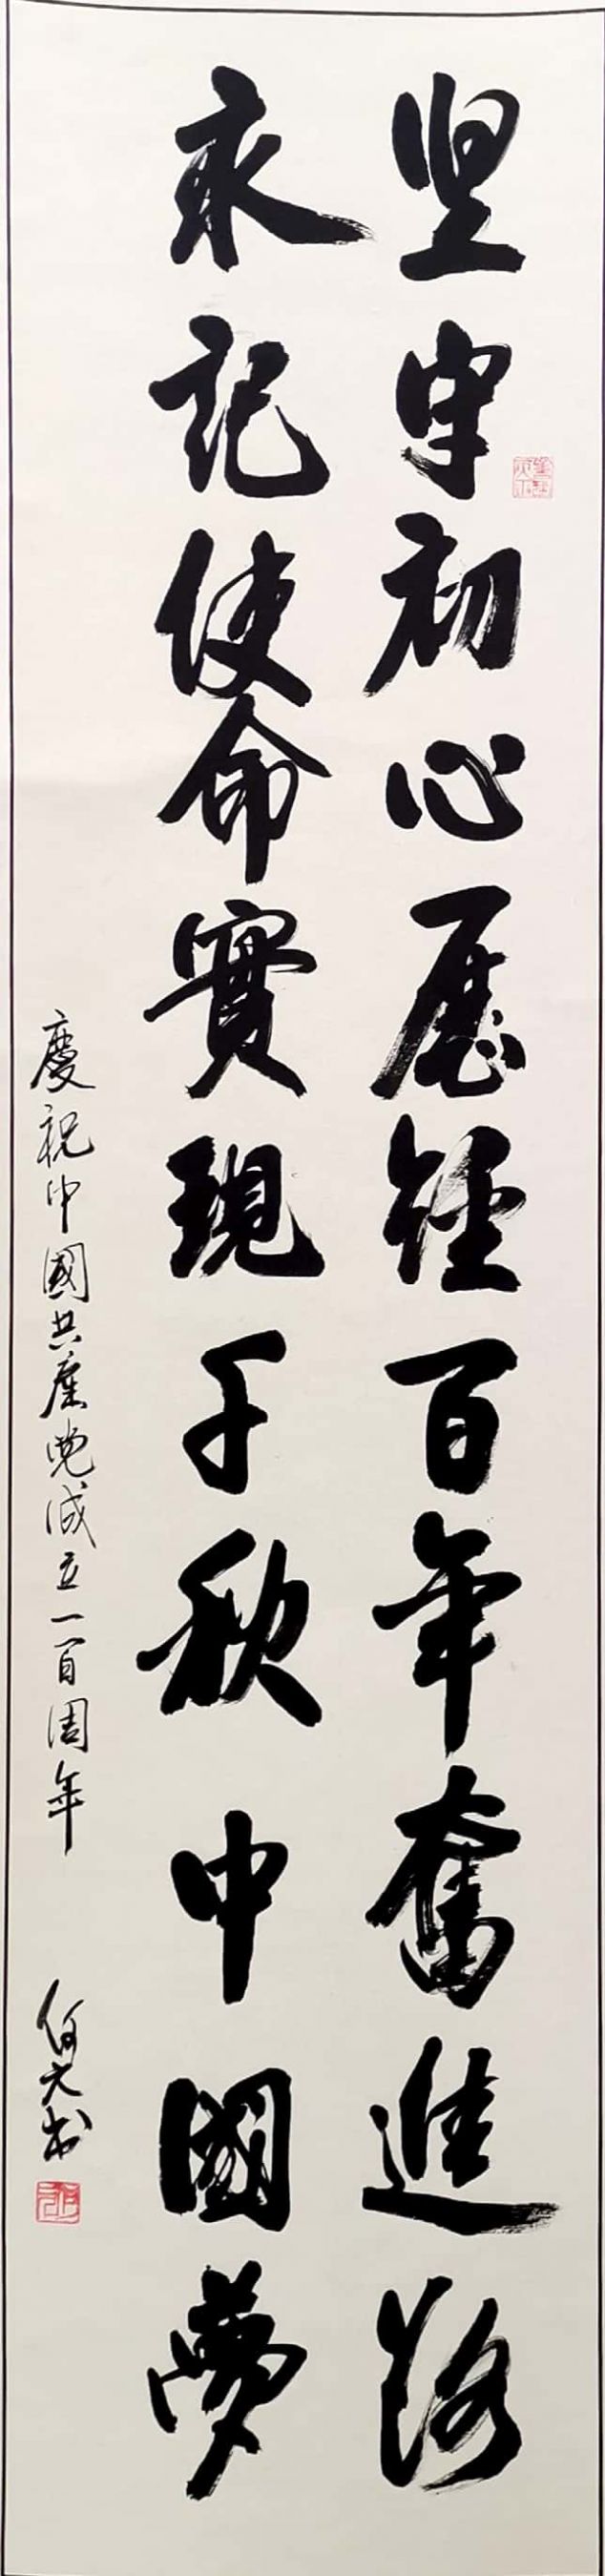 坚守初心歷經百年奮進路
永記使命實現千秋中國夢
慶祝中國共產黨成立一百周年
何元书